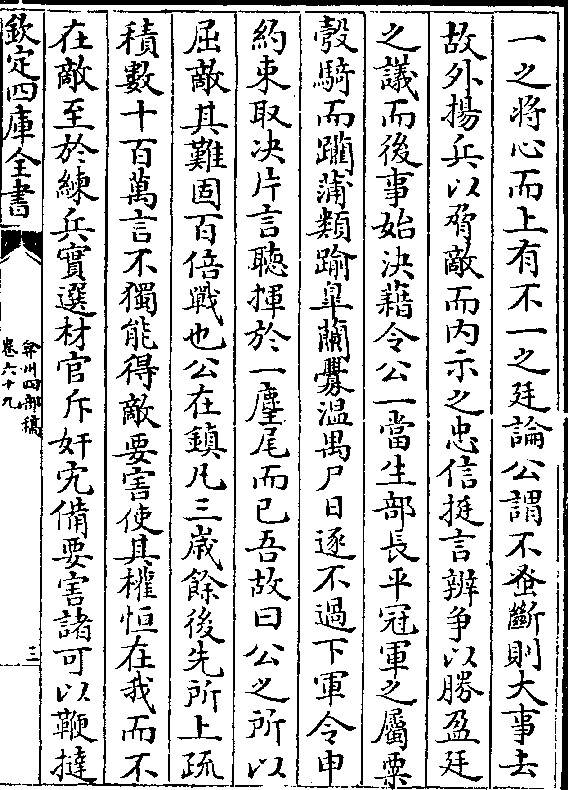 一之将心而上有不一之廷論公謂不蚤斷則大事去
故外揚兵以脅敵而内示之忠信挺言辨争以勝盈廷
之議而後事始決藉令公一當生部長平冠軍之屬票
彀騎而躪蒲類踰臯蘭爨温禺尸日逐不過下軍令申
約束取决片言聽揮於一麈尾而已吾故曰公之所以
屈敵其難固百倍戰也公在鎮凡三歲餘後先所上疏
積數十百萬言不獨能得敵要害使其權恒在我而不
在敵至於練兵實選材官斥奸宄備要害諸可以鞭撻
欽定四庫全書
弇州四部稿
卷六十九
三